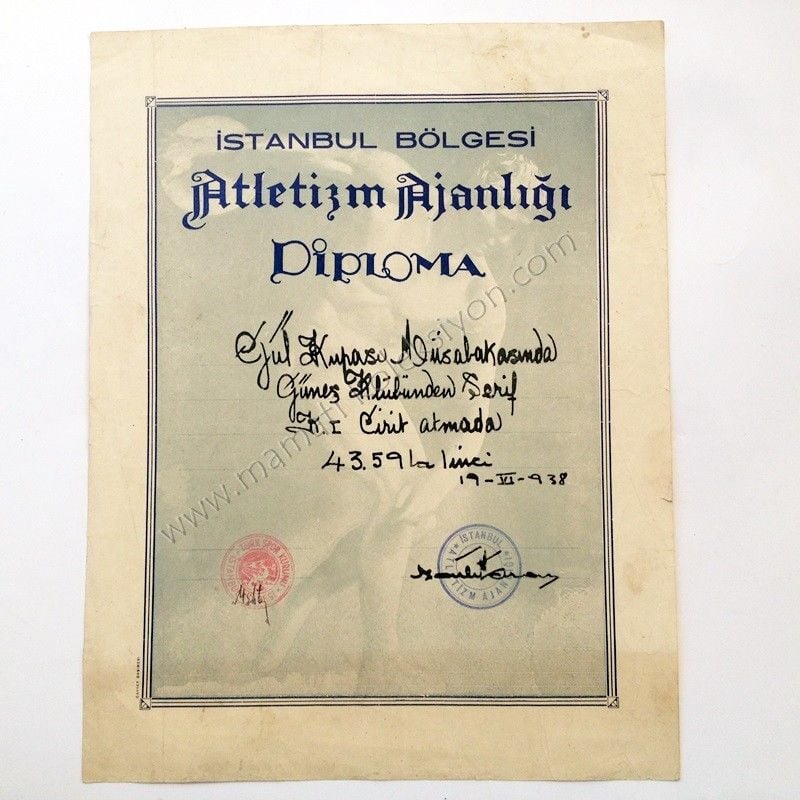 İSTANBUL BÖLGESİ
Atletizm Ajanlığı
DİPLOMA
Gül Kupası Müsabakasında
Güneş Klübünden Şerif
K. I Cirit atmada
43.59 la 1inci
19-VI-938
İSTANBUL
ATLETİZM AJAN